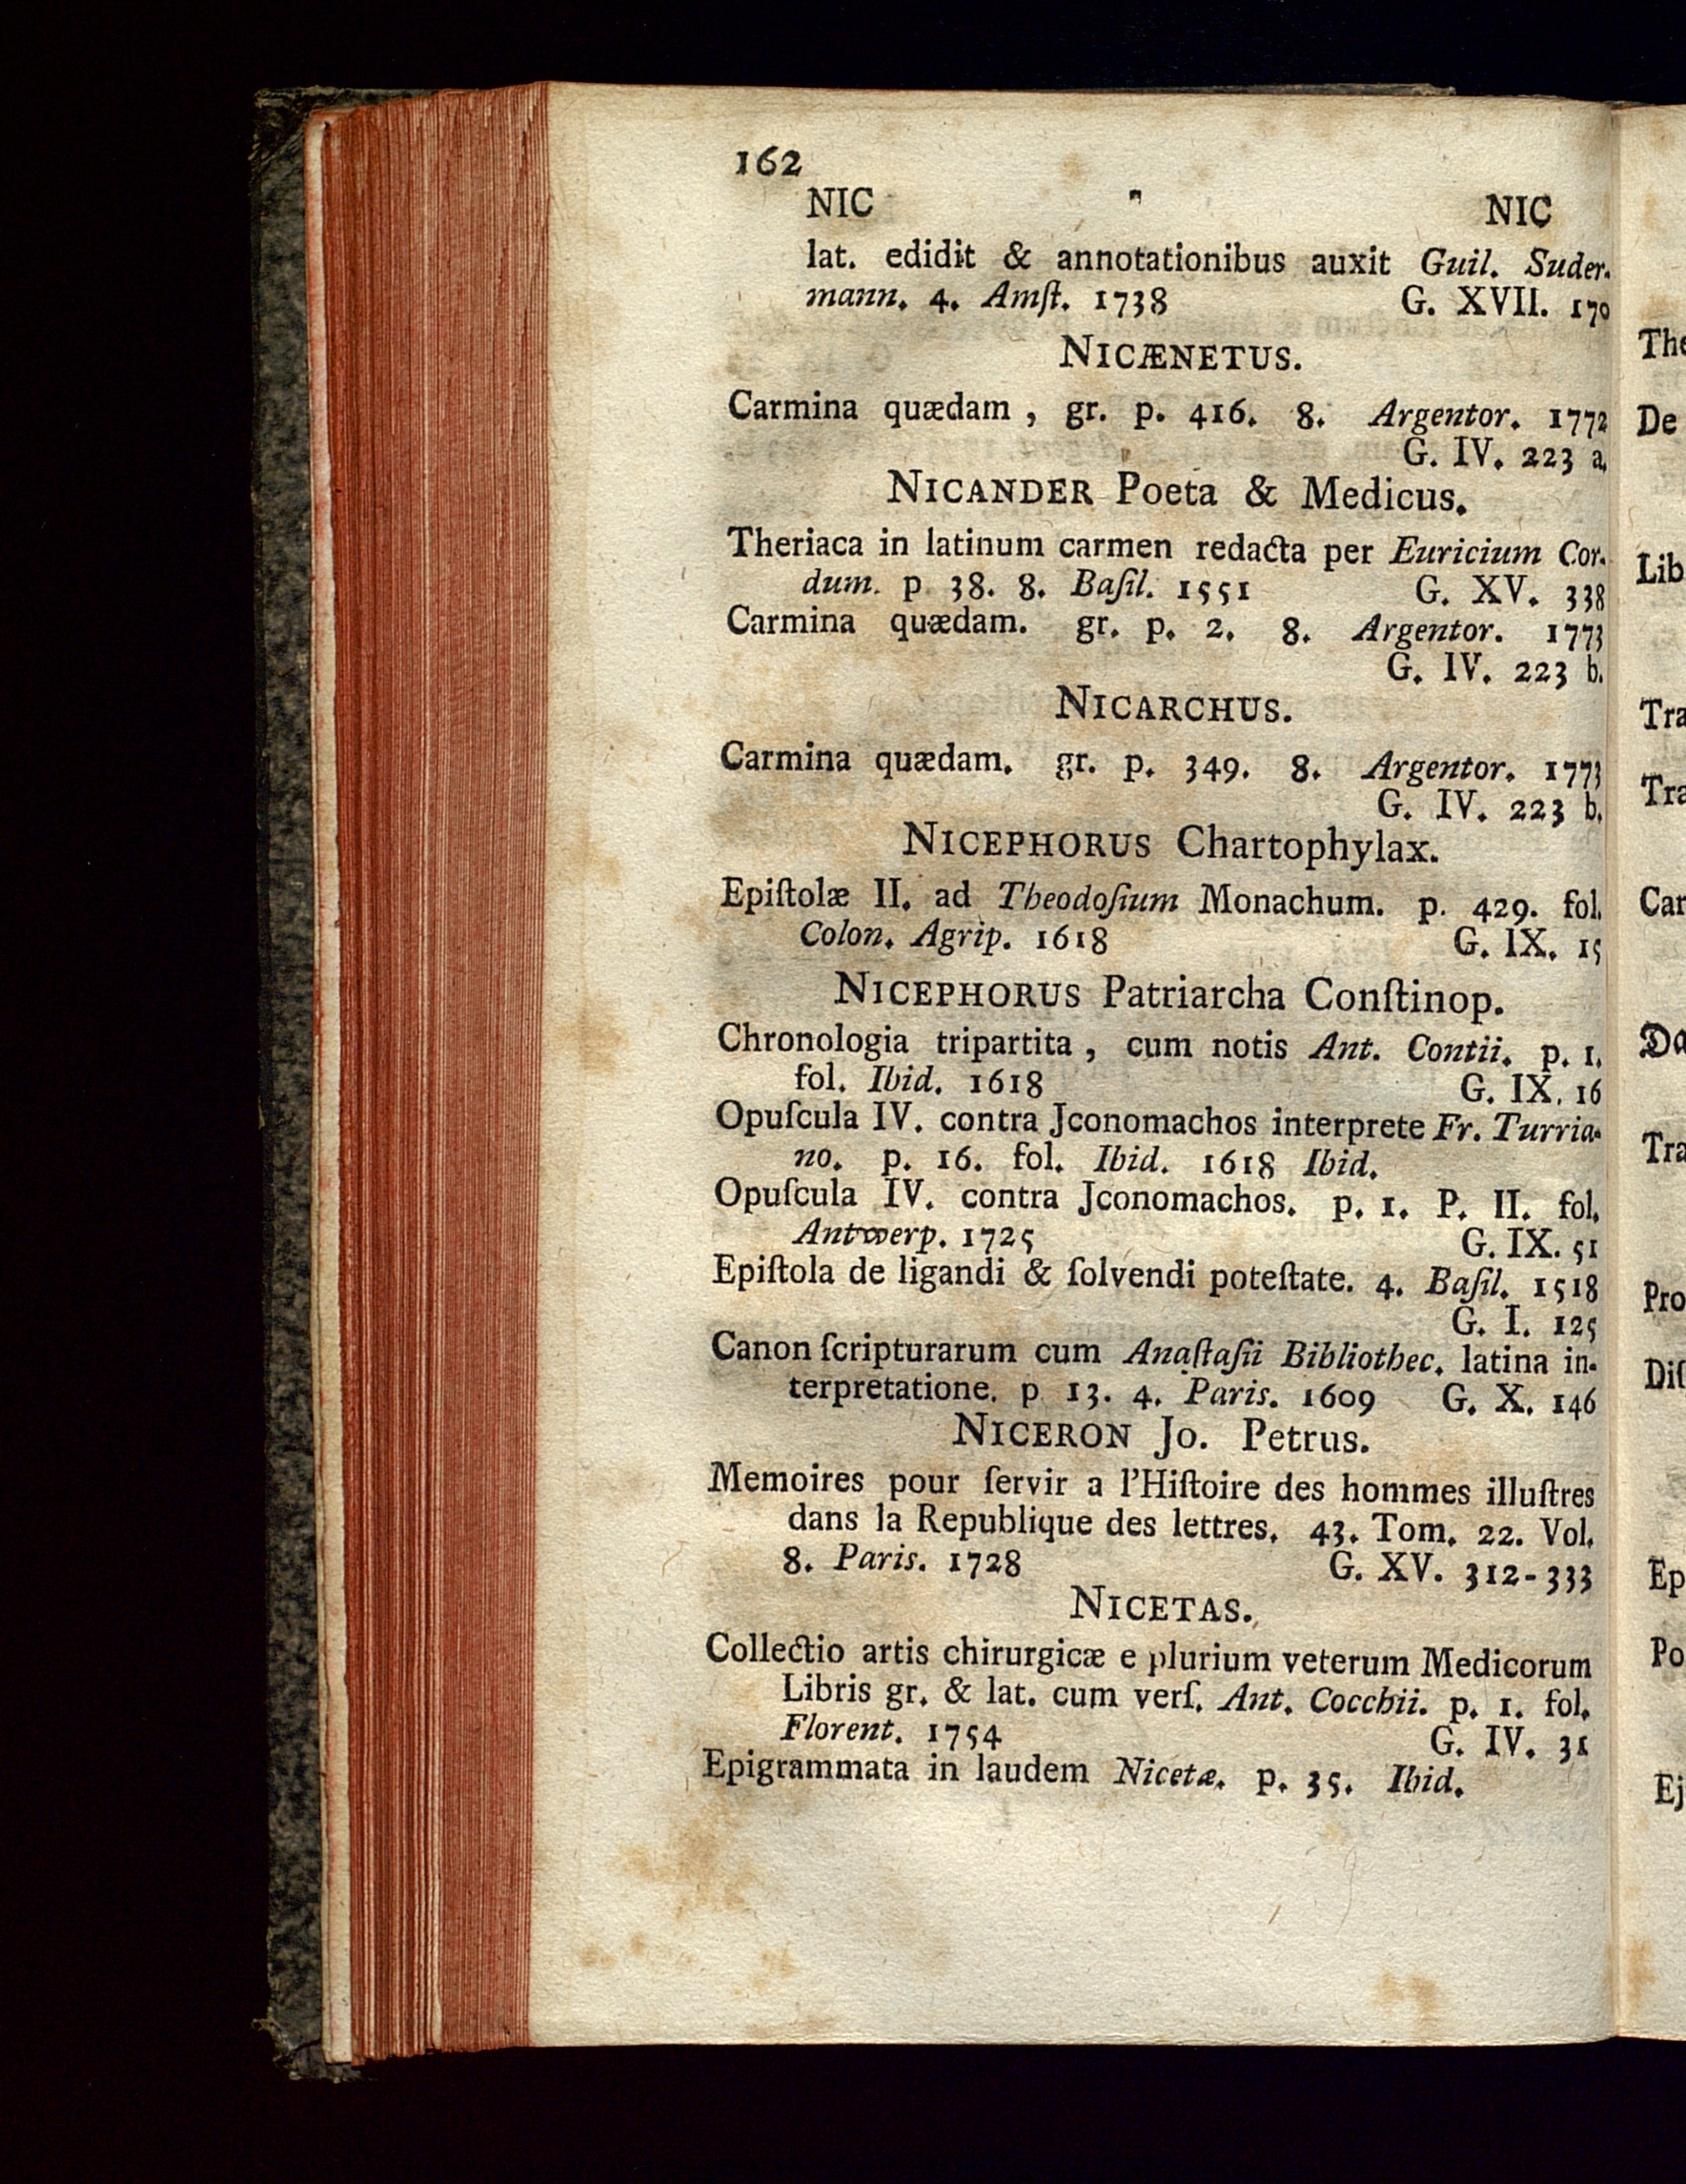 162
NIC NIC
lat. edidit & annotationibus auxit Guil. Suder-
mann. 4. Amſt. 1738 G. XVII. 170
NICÆNETUS.
Carmina quædam, gr. p. 416. 8. Argentor. 1772
G. IV. 223 a.
NICANDER Poeta & Medicus.
Theriaca in latinum carmen redacta per Euricium Cor-
dum. p. 38. 8. Baſil. 1551 G. XV. 338
Carmina quædam. gr. p. 2. 8. Argentor. 1773
G. IV. 223 b.
NICARCHUS.
Carmina quædam. gr. p. 349. 8. Argentor. 1773
G. IV. 223 b.
NICEPHORUS Chartophylax.
Epiſtolæ II. ad Theodoſium Monachum. p. 429. fol.
Colon. Agrip. 1618 G. IX. 15
NICEPHORUS Patriarcha Conſtinop.
Chronologia tripartita, cum notis Ant. Contii. p. 1.
fol. Ibid. 1618 G. IX. 16
Opuſcula IV. contra Jconomachos interprete Fr. Turria-
no. p. 16. fol. Ibid. 1618 Ibid.
Opuſcula IV. contra Jconomachos. p. 1. P. II. fol.
Antwerp. 1725 G. IX. 51
Epiſtola de ligandi & ſolvendi poteſtate. 4. Baſil. 1518
G. I. 125
Canon ſcripturarum cum Anaſtaſii Bibliothec. latina in-
terpretatione. p 13. 4. Paris. 1609 G. X. 146
NICERON Jo. Petrus.
Memoires pour ſervir a l'Hiſtoire des hommes illuſtres
dans la Republique des lettres. 43. Tom. 22. Vol.
8. Paris. 1728 G. XV. 312-333
NICETAS.
Collectio artis chirurgicæ e plurium veterum Medicorum
Libris gr. & lat. cum verſ. Ant. Cocchii. p. 1. fol.
Florent. 1754 G. IV. 31
Epigrammata in laudem Nicetæ. p. 35. Ibid.
The
De
Lib
Tra
Tra
Car
Da
Tra
Pro
Diſ
Ep
Po
Ej